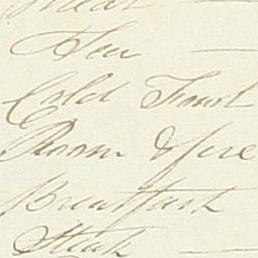 Tea
Cold Fowl
Room & fire
Breakfast
Steak